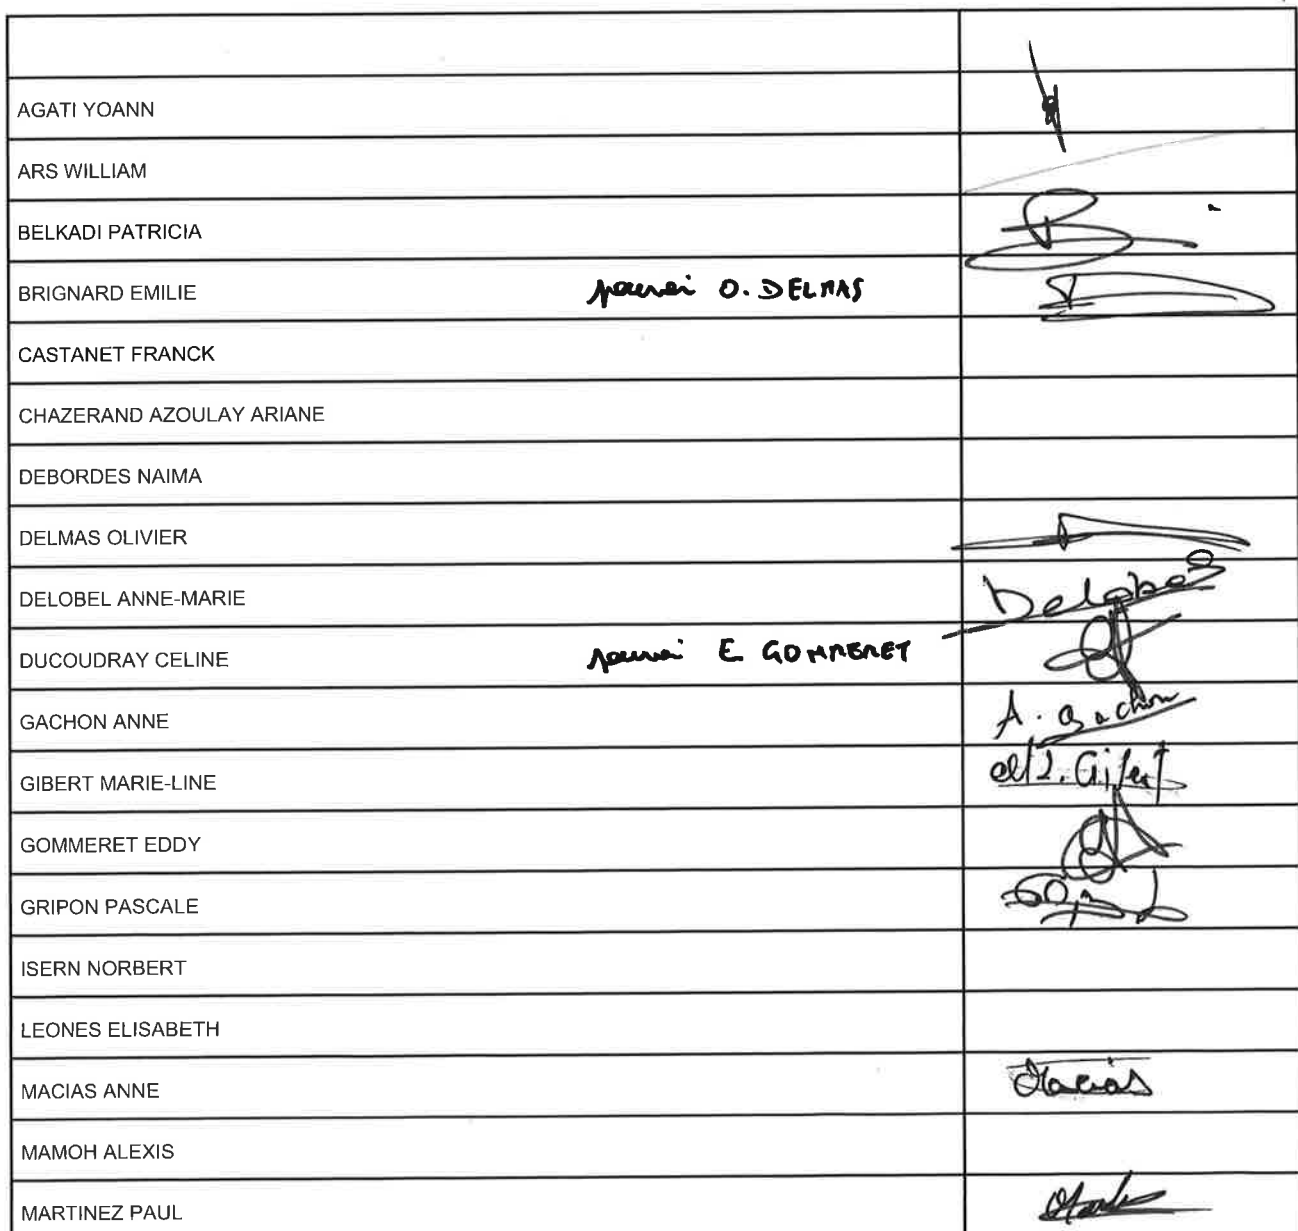 AGATI YOANN
ARS WILLIAM
BELKADI PATRICIA
BRIGNARD EMILIE pouvoir O. DELMAS
CASTANET FRANCK
CHAZERAND AZOULAY ARIANE
DEBORDES NAIMA
DELMAS OLIVIER
DELOBEL ANNE-MARIE Delobel
DUCOUDRAY CELINE pouvoir E GOMMERET
GACHON ANNE A. Gachon
GIBERT MARIE-LINE
GOMMERET EDDY
GRIPON PASCALE
ISERN NORBERT
LEONES ELISABETH
MACIAS ANNE Macias
MAMOH ALEXIS
MARTINEZ PAUL